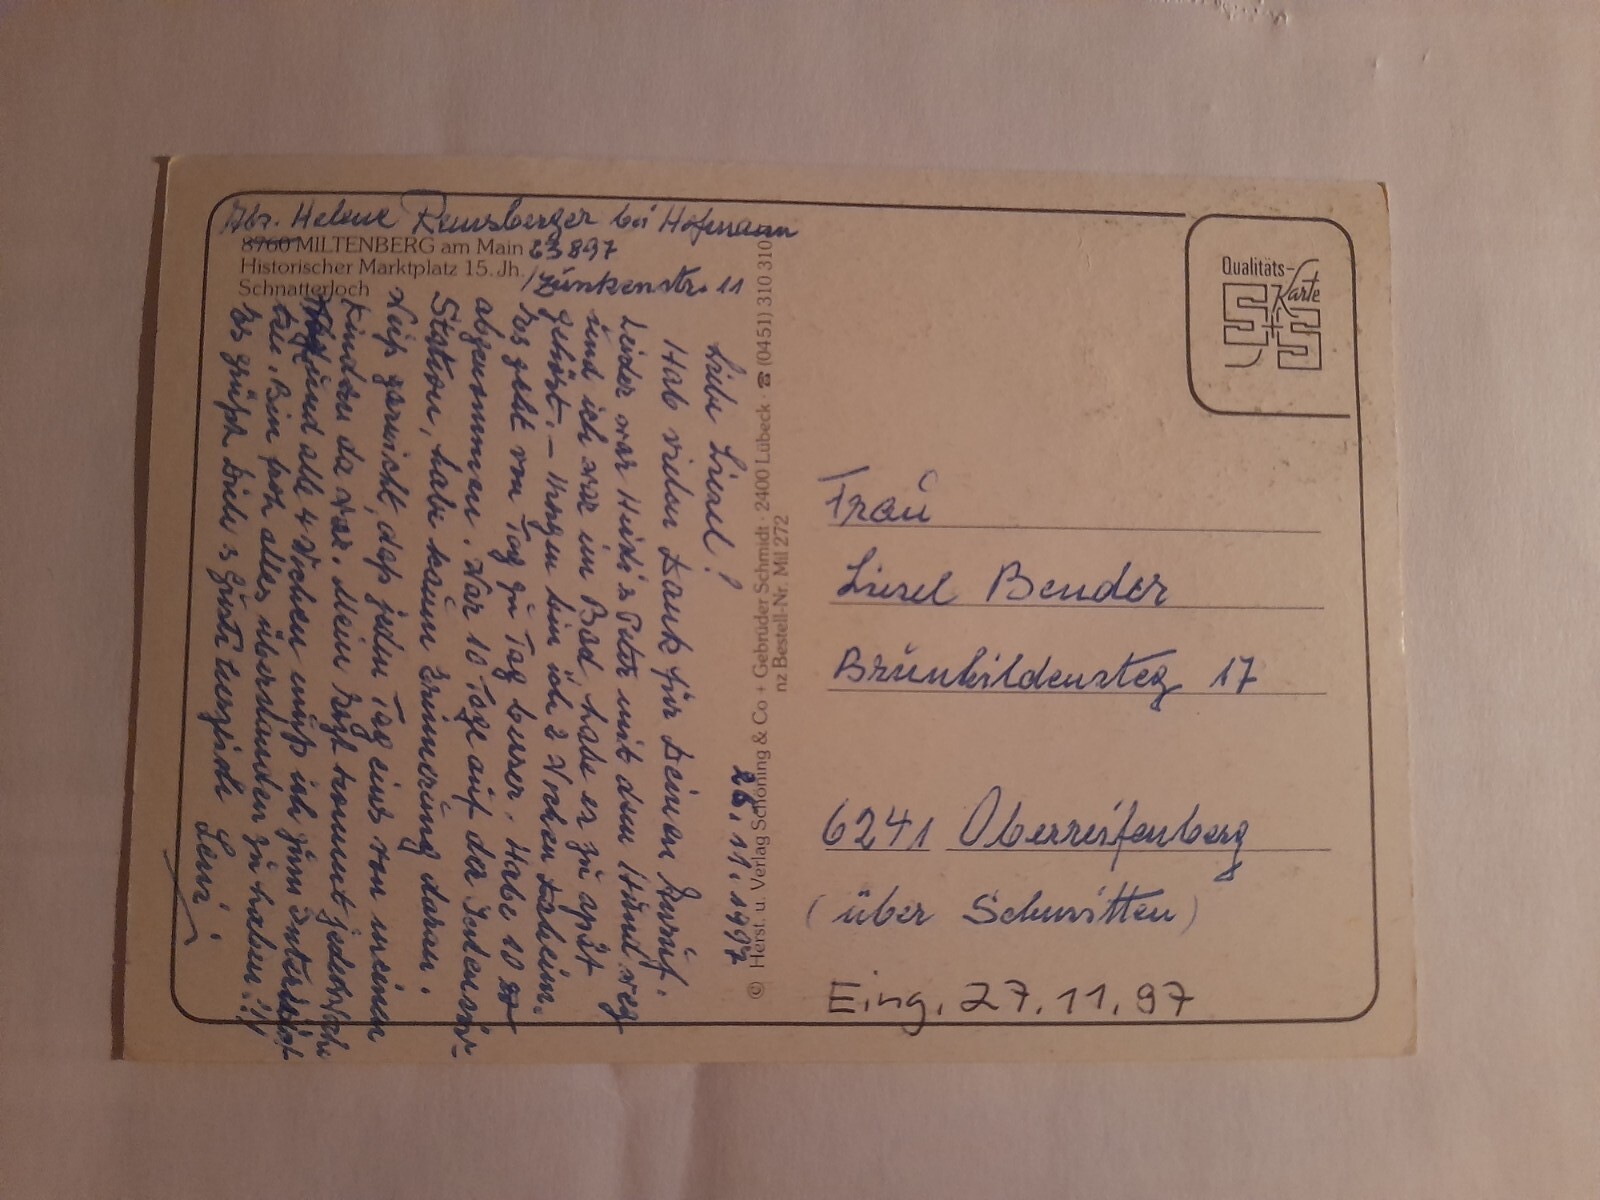 Abs. Helene Remsberger bei Hofmann
8760 MILTENBERG am Main 63897
Historischer Marktplatz 15. Jh. / Zunkenstr. 11
Schnatterloch
26.11.1997
Liebe Liesel!
Hab vielen Dank für Deinen Anruf.
Leider war Heidi u Peter mit dem Hund weg
und ich war im Bad, habe es zu spät
gehört. – Morgen bin ich 2 Wochen daheim.
Es geht von Tag zu Tag besser. Habe 10
abgenommen. War 10 Tage auf der Intensiv-
Station, habe kaum Erinnerung daran.
Weiß garnicht, daß jeden Tag eins von meinen
Kindern da war. Mein Arzt kommt jede Woche
und alle 4 Wochen muß ich zum
Bin froh alles überstanden zu haben!!
Es grüßt Dich u herzlich
Leni
© Herst. u. Verlag Schöning & Co + Gebrüder Schmidt · 2400 Lübeck · ☎ (0451) 310 310
nz Bestell-Nr. Mil 272
Qualitäts-
Karte
S+S
Frau
Liesel Bender
Brunhildensteg 17
6241 Oberreifenberg
(über Schmitten)
Eing. 27.11.97